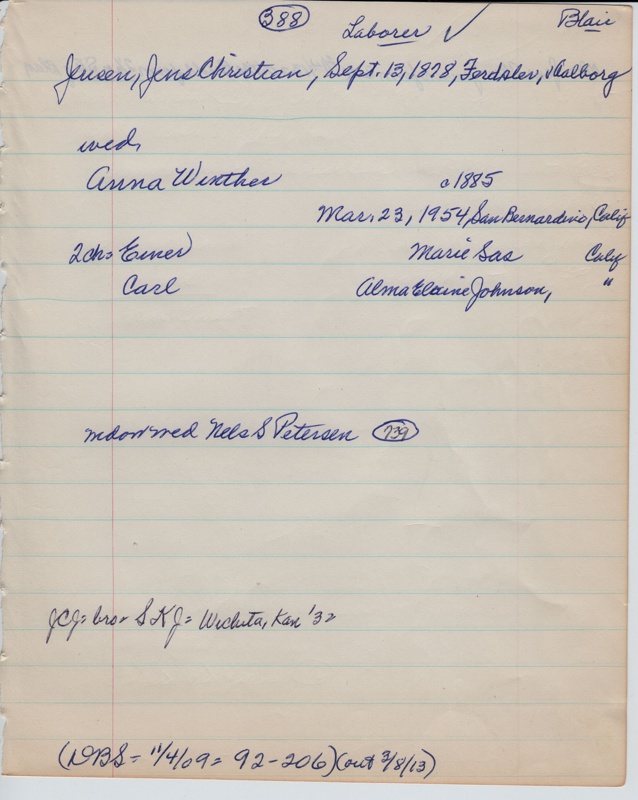 388
Laborer ✓ Blair
Jensen, Jens Christian, Sept. 13, 1878, Ferdslev, Aalborg
wed,
Anna Winther c1885
Mar. 23, 1954, San Bernardino, Calif
2ch= Einer Marie Sas Calif
Carl Alma Elaine Johnson, "
wed Nels S Petersen 739
JCJ= bro= S K J= Wichita, Kan '32
(DBS= 11/4/09= 92-206) (out 3/8/13)